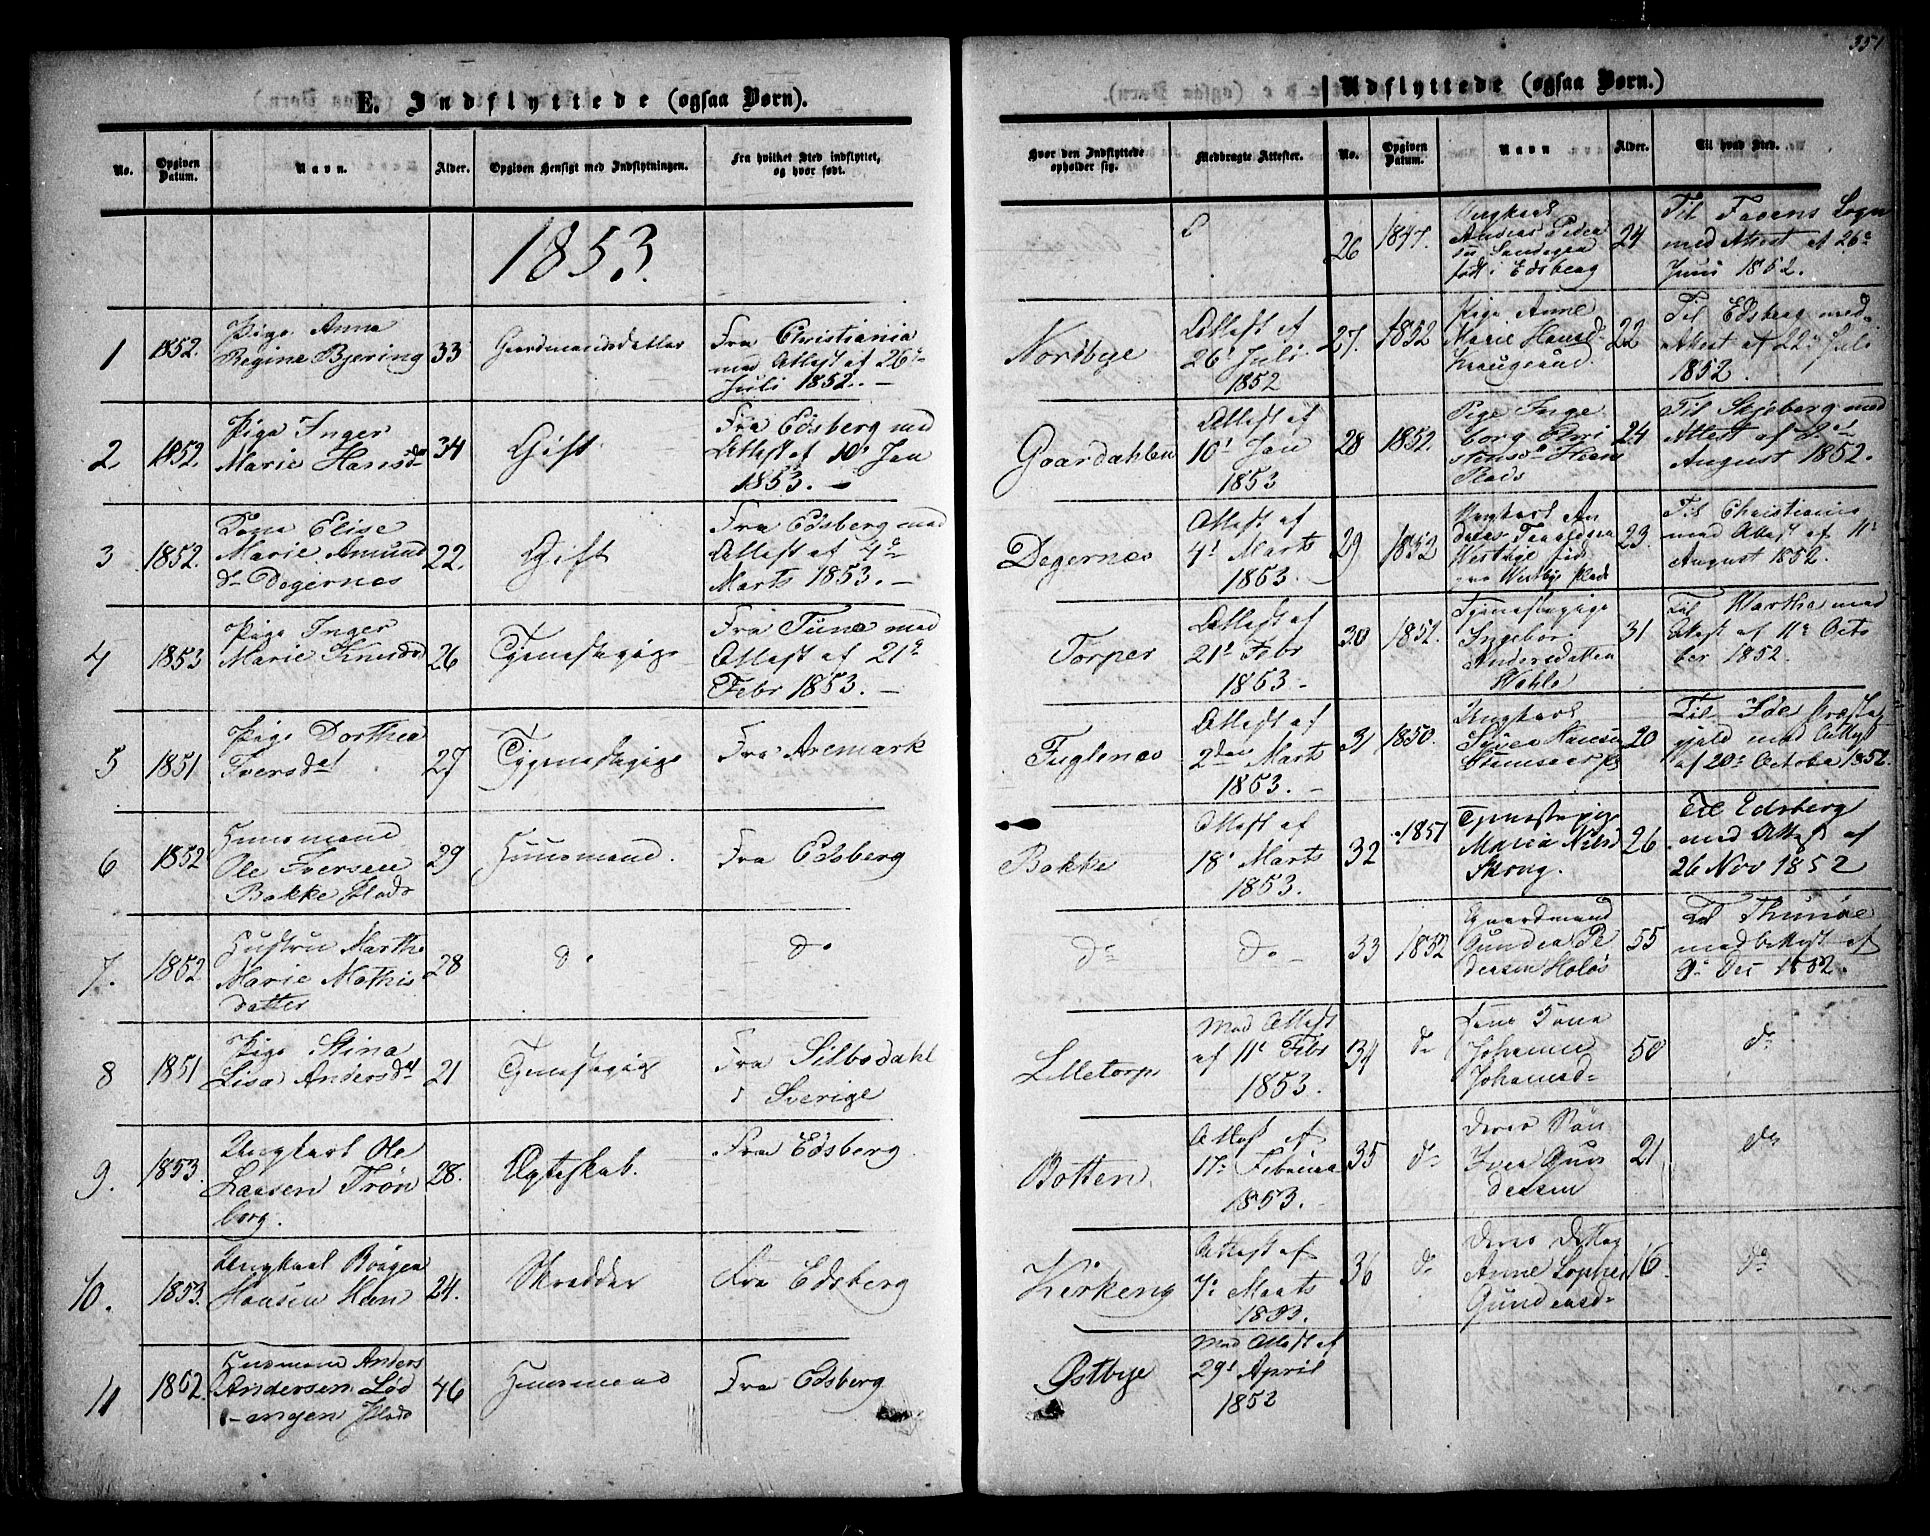 351
E. Indflyttede (ogsaa Børn).
No.
Opgiven Datum.
Navn.
Alder.
Opgiven Hensigt med Indflytningen.
Fra hvilket Sted indflyttet, og hvor født.
1853.
1 1852. Pige Anna
Regine Bjering 33 Gaardmandsdatter
Fra Christiania
med Attest af 26de
Juli 1852. –
2 1852. Pige Inger
Marie Hansd 34 Gift
Fra Edsberg med
Attest af 10' Jan
1853. –
3 1852. Kone Elise
Marie Amund
d– Degernes 22. Gift
Fra Edsberg med
Attest af 4de
Marts 1853. –
4 1853 Pige Inger
Marie Knudsd 26 Tjenestepige
Fra Tune med
Attest af 21de
Febr 1853. –
5 1851 Pige Dorthea
Iversdat 27 Tjenestepige Fra Aremark
6 1852 Huusmand
Ole Iversen
Bakke Plads 29 Huusmand. Fra Edsberg
7. 1852 Hustru Marthe
Marie Mathis
datter 28 do do
8 1851 Pige Stina
Lisa Andersdat 21 Tjenestepige
Fra Silbodahl
i Sverige
9. 1853. Ungkarl Ole
Larsen Trøn
borg. 28. Ægteskab. Fra Edsberg
10. 1853. Ungkarl
Hansen 24. Skrædder Fra Edsberg
11 1852. Huusmand Anders
Andersen Lød
engen Plads 46 Huusmand Fra Edsberg
Hvor den Indflyttede opholder sig.
Medbragte Attester.
Nordbye Attest af
26' Juli
1852
Gaardahlen Attest af
10' Jan
1853
Degernes Attest af
4' Marts
1853.
Torper Attest af
21' Febr
1853. –
Fuglenes Attest af
2den Marts
1853. –
Bakke Attest af
18' Marts
1853.
do do –
Lilletorp Med Attest
af 11' Febr
1853.
Botten. Attest af
17de Februar
1853. –
Kirkeng Attest af
7de Marts
1853.
Østbye Med Attest af
29' April
1852
Udflyttede (ogsaa Børn.)
No.
Opgiven Datum.
Navn
Alder.
Til hvad Sted.
26 1847. Ungkarl
Andreas Peder
født i Edsberg 24
Til Sogn
med Attest af 26de
Juni 1852.
27. 1852 Pige Anne
Marie Hansd 22
Til Edsberg med
Attest af 22de Juli
1852.
28 1852. Pige Inge
borg
Plads 24
Til Skjeberg med
Attest af 2de
August 1852.
29 1852 Ungkarl An
dreas
Westbye
Westby Plads 23.
Til Christiania
med Attest af 11'
August 1852.
30 1852. Tjenestepige
Ingebor
Andersdatter 31
Til med
Attest af 11te Octo
ber 1852.
31 1850. Ungkarl
Hansen 20
Til Ide Præste
gjeld med Attest
af 20de October 1852.
32 1851 Tjenestepige
Maria Nilsd
Skoug. 26
Til Edsberg
med Attest af
26 Nov 1852
33 1852 Gaardmand
Gunder Pe
dersen 55
Til Thunøe
med Attest af
9de Dec 1852.
34 do Kone
Johanne
Johansd– 50 do
35 do deres Søn
Iver Gun
dersen 21 do
36 do deres Datter
Anne Sophie
Gundersd– 16. do